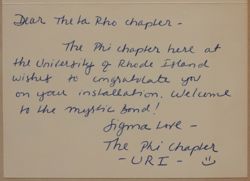 Dear Theta Rho chapter -
The Phi chapter here at
the University of Rhode Island
wishes to congratulate you
on your installation. Welcome
to the mystic bond!
Sigma Love -
The Phi Chapter
- URI -